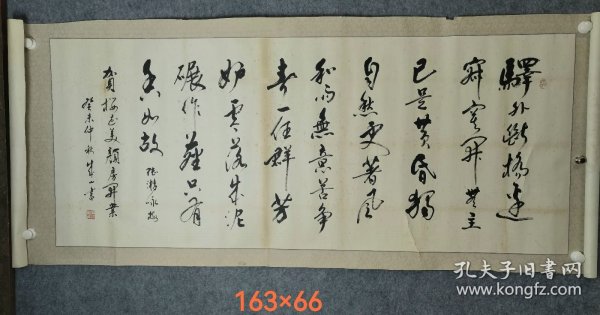 驛外斷橋邊
寂寞開無主
已是黄昏獨
自愁更著風
和雨無意苦争
春一任群芳
妒零落成泥
碾作塵只有
香如故 陸游詠梅
賀櫻花美顏房開業
癸未仲秋
163×66
孔夫子旧书网
www.kongfz.com